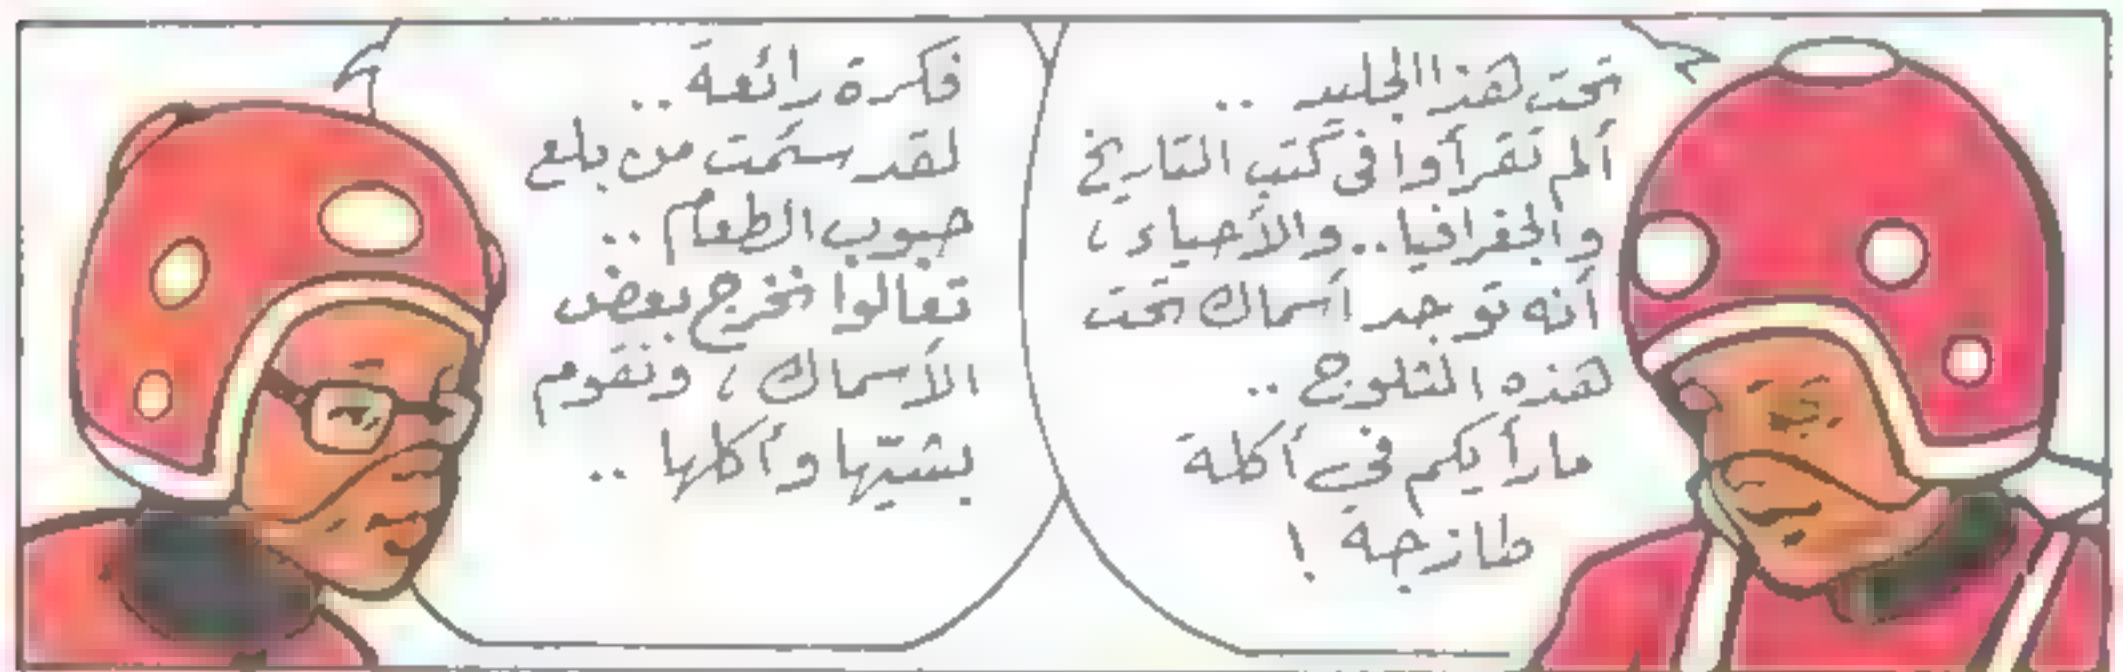 تحت هذا الجليد ..
ألم تقرأوا فى كتب التاريخ
والجغرافيا .. والأحياء ،
أنه توجد أسماك تحت
هذه الثلوج ..
ما رأيكم فى أكلة
طازجة !
فكرة رائعة ..
لقد سئمت من بلع
حبوب الطعام ..
تعالوا نخرج بعض
الأسماك ، ونقوم
بشيّها وأكلها ..